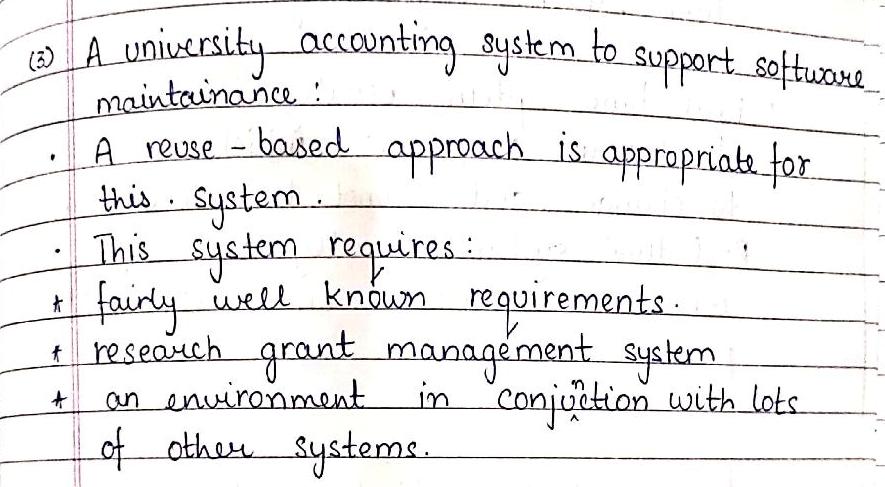 (3) A university accounting system to support software
maintainance :
· A reuse - based approach is appropriate for
this . system .
· This system requires :
* fairly well known requirements .
* research grant management system
* an environment in conjunction with lots
of other systems .